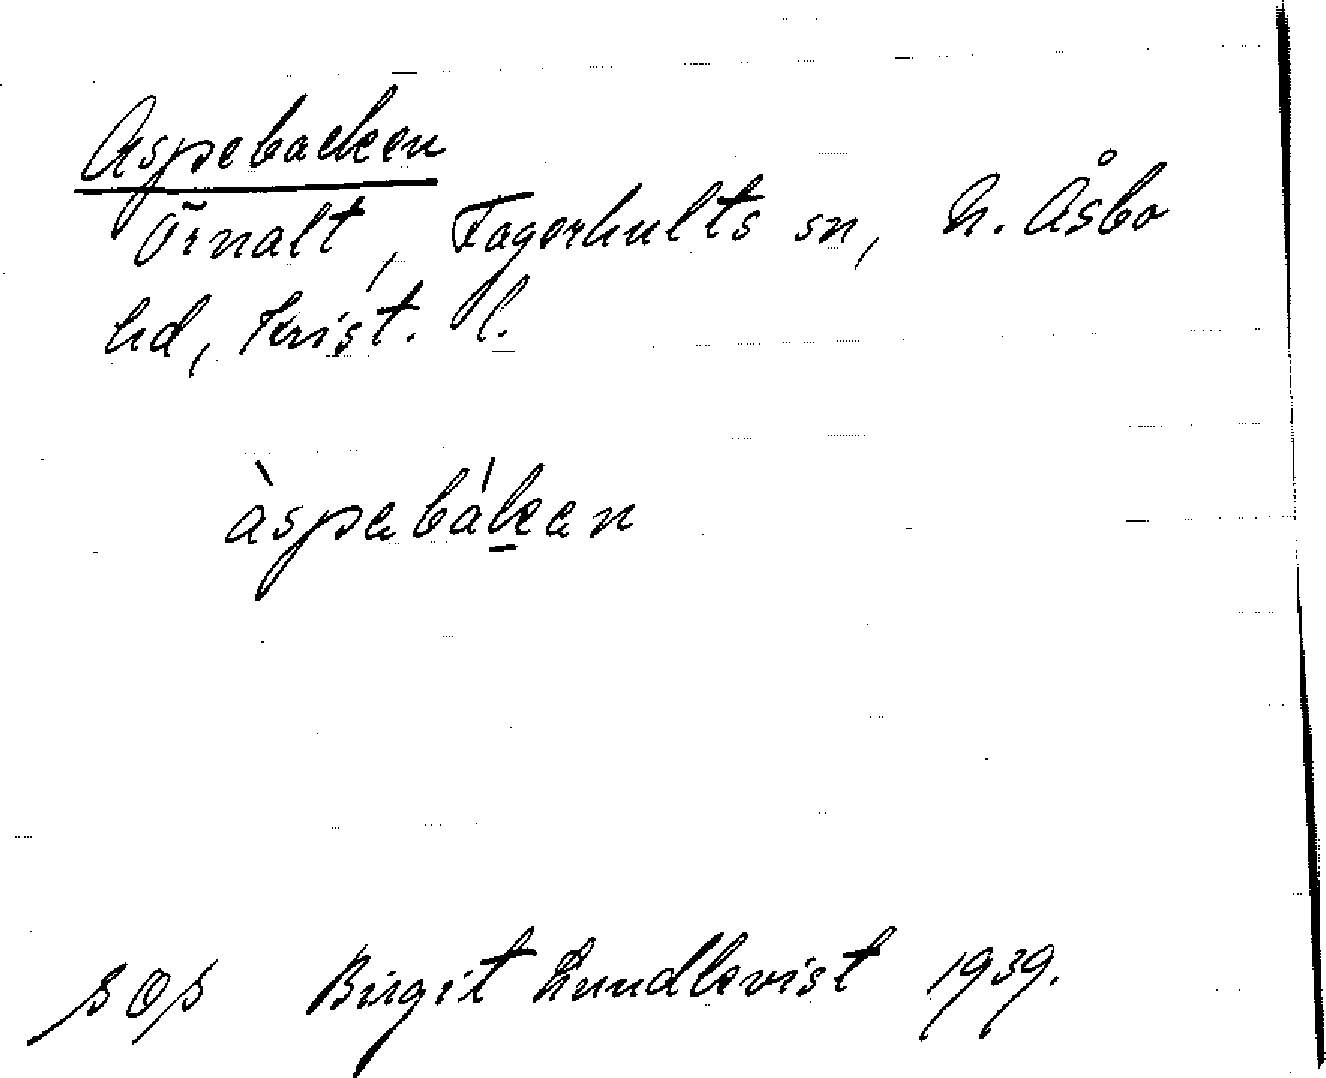 Aspebacken
Örnalt, Fagerhults sn, N. Åsbo
hd, Krist. l.
àspebáken
SOS Birgit Lundkvist 1939.